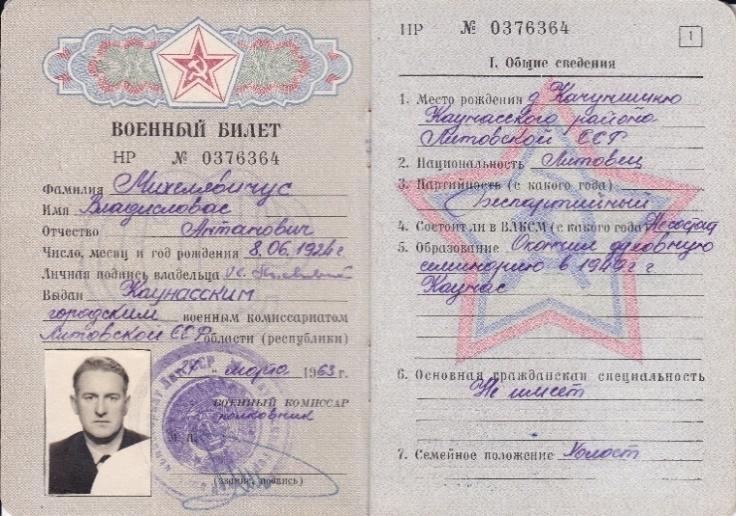 ВОЕННЫЙ БИЛЕТ
НР № 0376364
Фамилия Михелявичус
Имя Владисловас
Отчество Антанович
Число, месяц и год рождения 8.06.1924 г
Личная подпись владельца
Выдан Каунасским
городским военным комиссариатом
Литовской ССР области (республики)
марта 1963 г.
ВОЕННЫЙ КОМИССАР
полковник
М. П.
(звание, подпись)
НР № 0376364
1
I. Общие сведения
1. Место рождения д.
Каунасского района
Литовской ССР
2. Национальность Литовец
3. Партийность (с какого года)
Беспартийный
4. Состоял ли в ВЛКСМ (с какого года)
5. Образование Окончил духовную
семинорию в 1949 г г
Каунас
6. Основная гражданская специальность
Не имеет
7. Семейное положение Холост